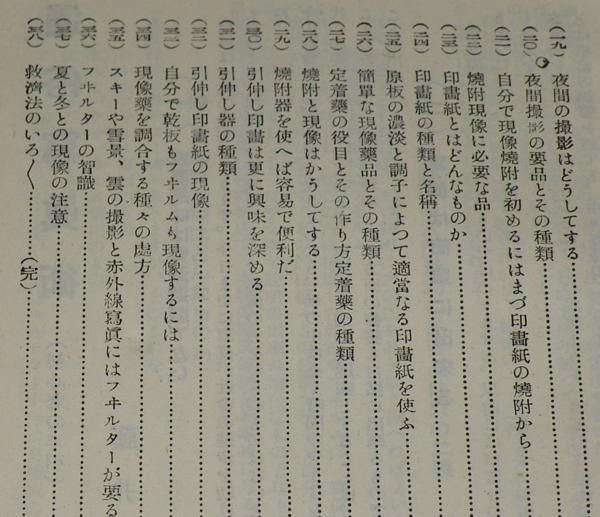 (一九) 夜間の撮影はどうしてする
(二〇) 夜間撮影の要品とその種類
(二一) 自分で現像燒附を初めるにはまづ印畫紙の燒附から
(二二) 燒附現像に必要な品
(二三) 印畫紙とはどんなものか
(二四) 印畫紙の種類と名稱
(二五) 原板の濃淡と調子によつて適當なる印畫紙を使ふ
(二六) 簡單な現像藥品とその種類
(二七) 定着藥の役目とその作り方定着藥の種類
(二八) 燒附と現像はかうしてする
(二九) 燒附器を使へば容易で便利だ
(三〇) 引伸し印畫は更に興味を深める
(三一) 引伸し器の種類
(三二) 引伸し印畫紙の現像
(三三) 自分で乾板もフヰルムも現像するには
(三四) 現像藥を調合する種々の處方
(三五) スキーや雪景、雲の撮影と赤外線寫眞にはフヰルターが要る
(三六) フヰルターの智識
(三七) 夏と冬との現像の注意
(三八) 救濟法のいろ〱 (完)